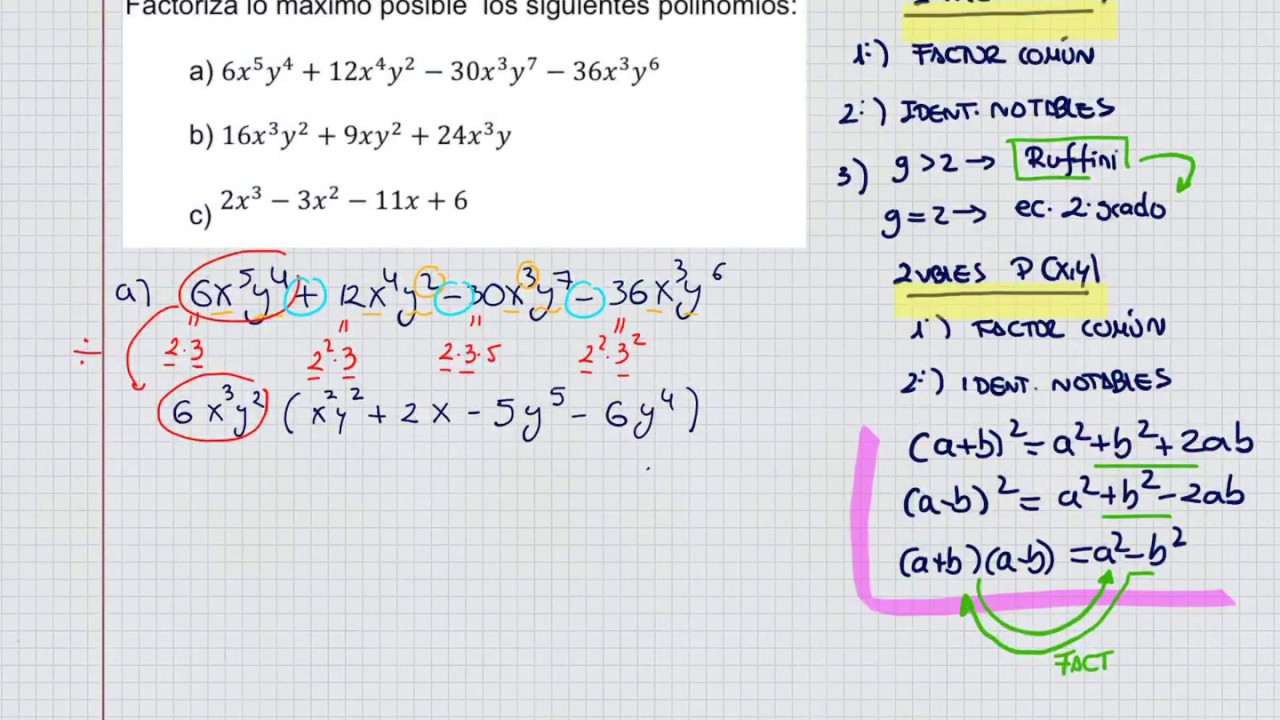 Factoriza lo máximo posible los siguientes polinomios:
a) 6x⁵y⁴ + 12x⁴y² − 30x³y⁷ − 36x³y⁶
b) 16x³y² + 9xy² + 24x³y
c) 2x³ − 3x² − 11x + 6
a) 6x⁵y⁴ + 12x⁴y² − 30x³y⁷ − 36x³y⁶
÷ 2·3 2²·3 2·3·5 2²·3²
6x³y² (x²y² + 2x − 5y⁵ − 6y⁴)
1º) FACTOR COMÚN
2º) IDENT. NOTABLES
3) g>2 → Ruffini
g=2 → ec. 2º grado
2 VBLES P(x,y)
1º) FACTOR COMÚN
2º) IDENT. NOTABLES
(a+b)² = a²+b²+2ab
(a-b)² = a²+b²-2ab
(a+b)(a-b) = a²-b²
FACT